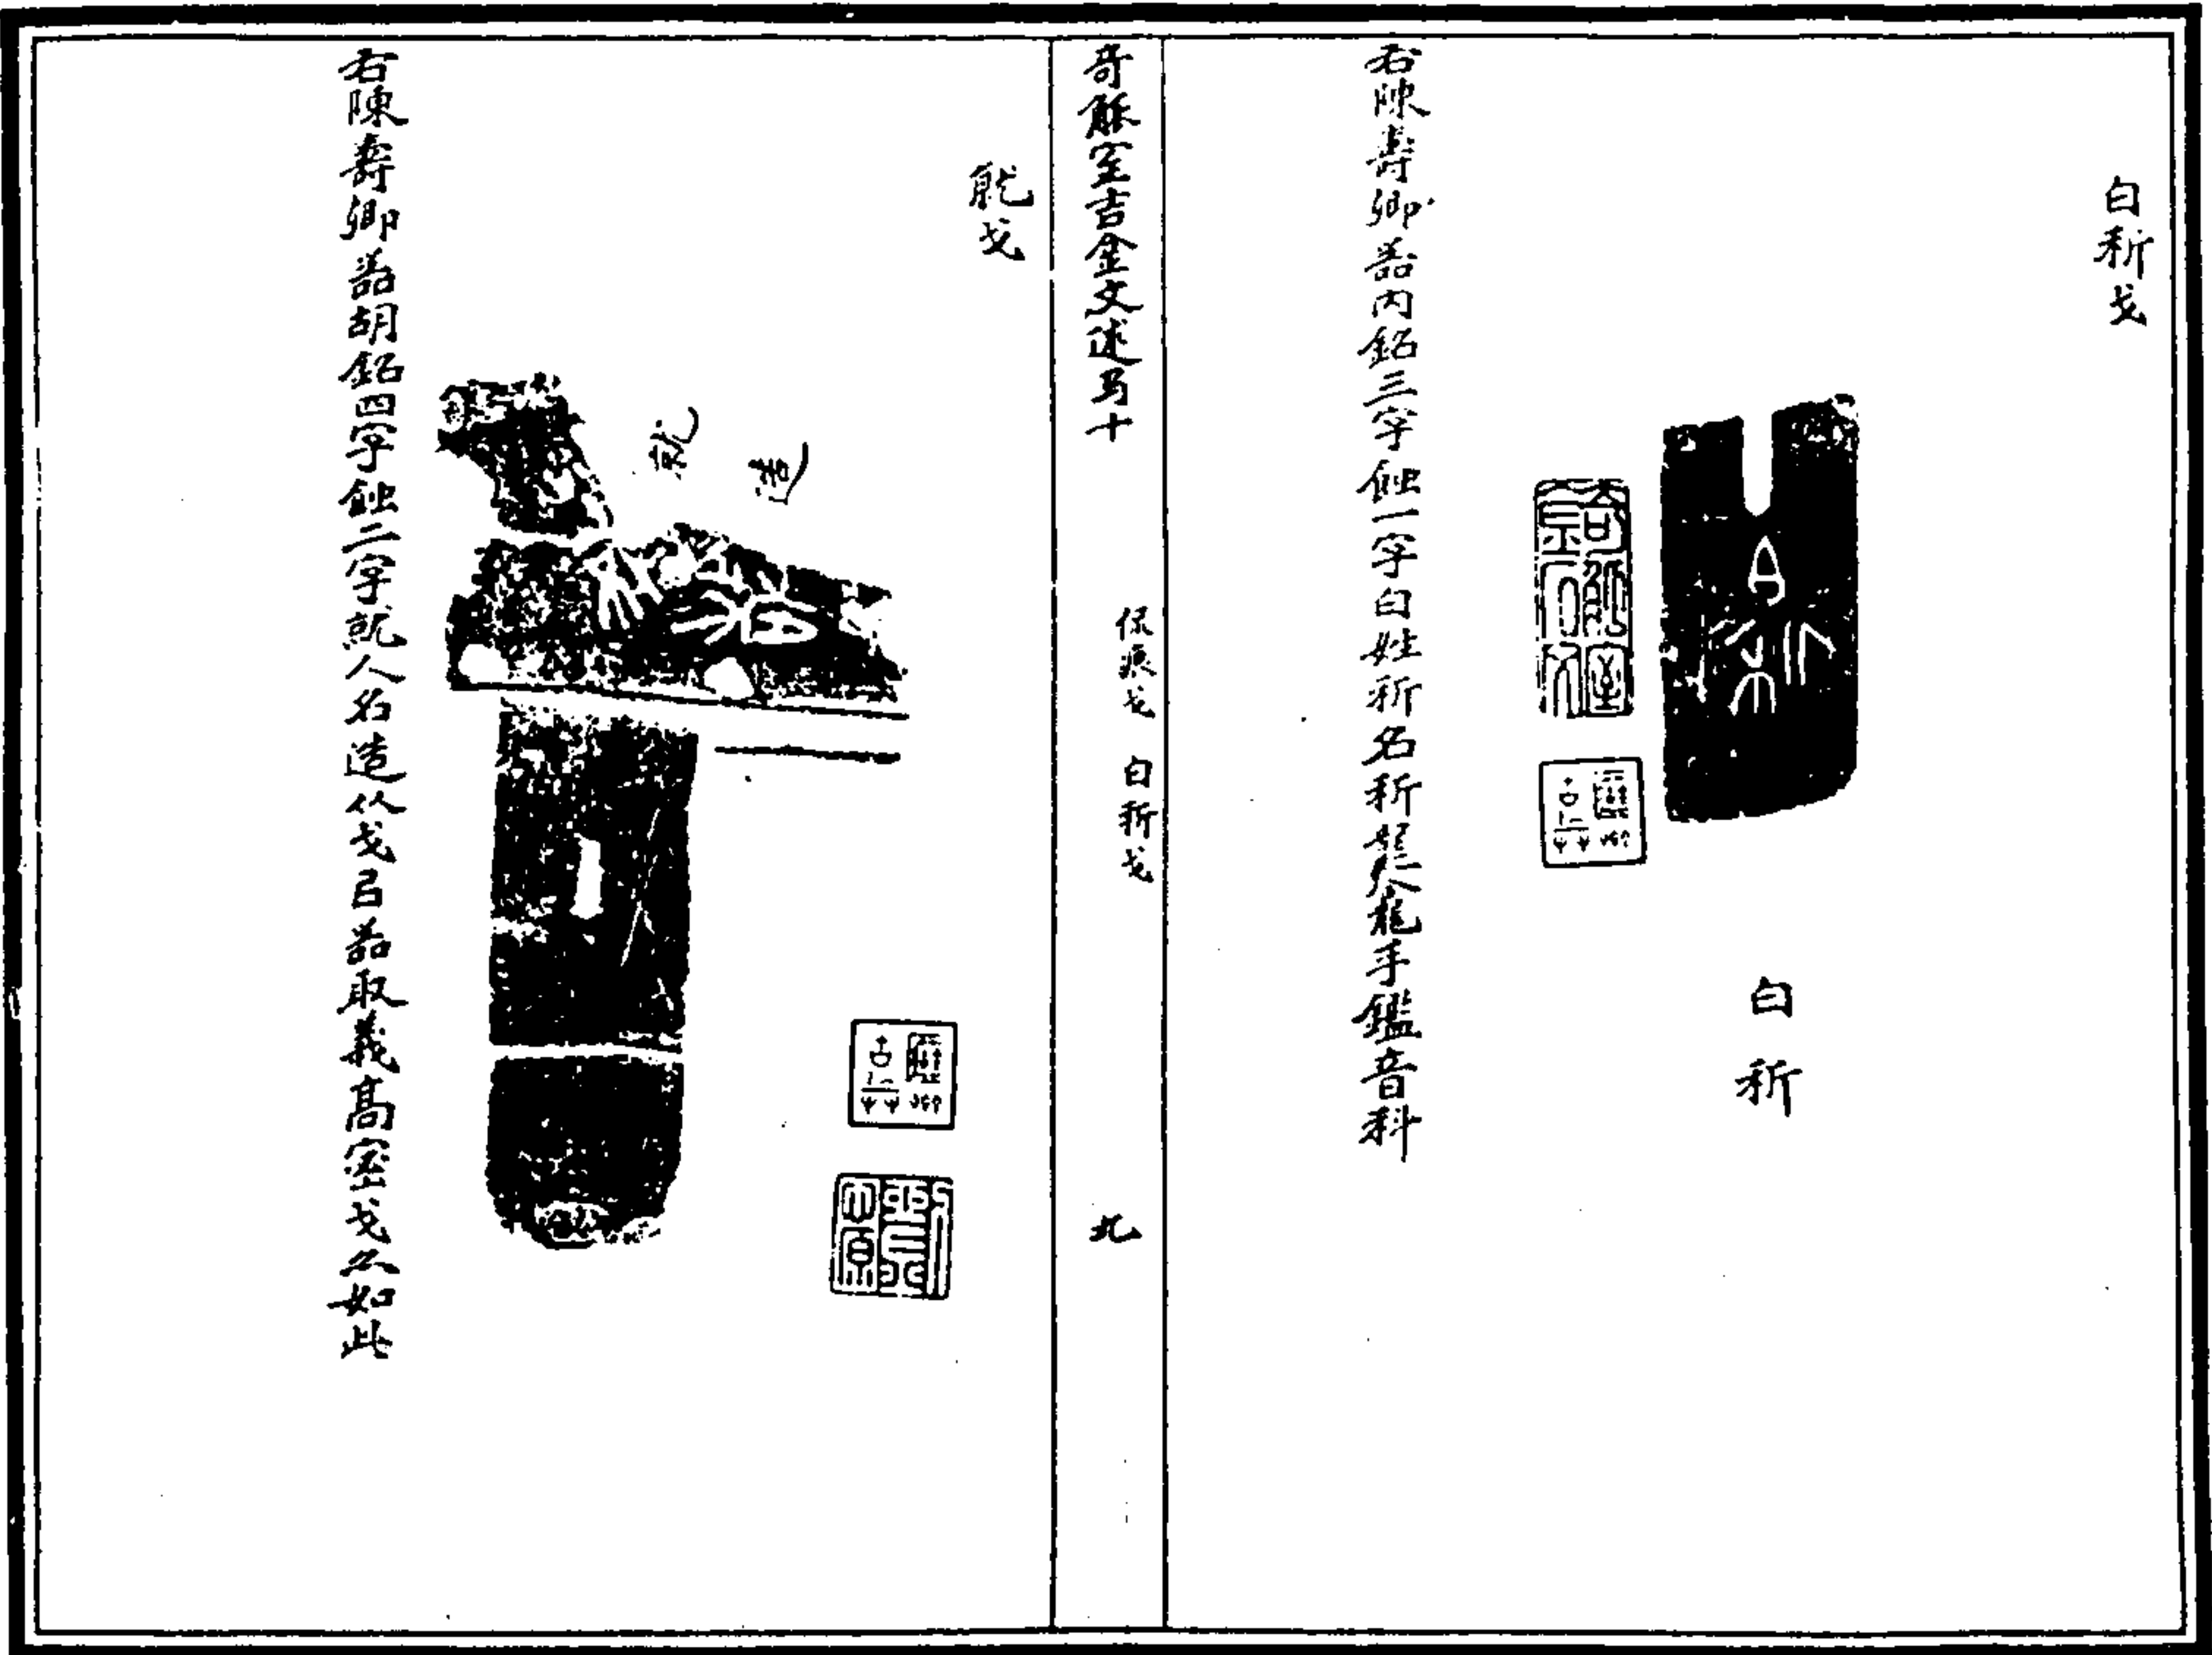 白䂠戈
白
右陳壽卿器內銘三字蝕一字白姓名龍龕手鑑音科
奇觚室吉金文述卷十
保 戈 白 戈
九
戈
造
右陳壽卿器胡銘四字蝕二字就人名造从戈㠯器取義高密戈亦如此